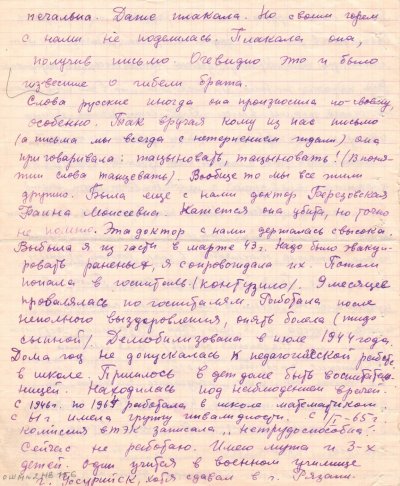 печальна. Даже плакала. Но своим горем
с нами не поделилась. Плакала она,
получив письмо. Очевидно это и было
известие о гибели брата.
Слова русские иногда она произносила по-своему,
особенно. Так вручая кому из нас письмо
(а письма мы всегда с нетерпением ждали) она
приговаривала: тацыновать, тацыновать! (В поня-
тии слова танцевать). Вообще то мы все жили
дружно. Была еще с нами доктор Березовская
Фаина Моисеевна. Кажется она убита, но точно
не помню. Эта доктор с нами держалась свысока.
Выбыла я из части в марте 43 г. Надо было эвакуи-
ровать раненых, я сопровождала их. Потом
попала в госпиталь (контузило). 9 месяцев
провалялась по госпиталям. Работала после
неполного выздоровления, опять болела
Демобилизована в июле 1944 года,
Дома год не допускалась к педагогической работе
в школе. Пришлось в дет доме быть воспитатель-
ницей. Находилась под наблюдением врачей.
С 1946 г. по 1964 работала в школе математиком.
с 61 г. имела группу инвалидности. С 65 г.
комиссия ВТЭК записала "нетрудоспособна".
Сейчас не работаю. Имею мужа и 3-х
детей. Один учится в военном училище
Уссурийск, хотя сдавал в г. Рязани.